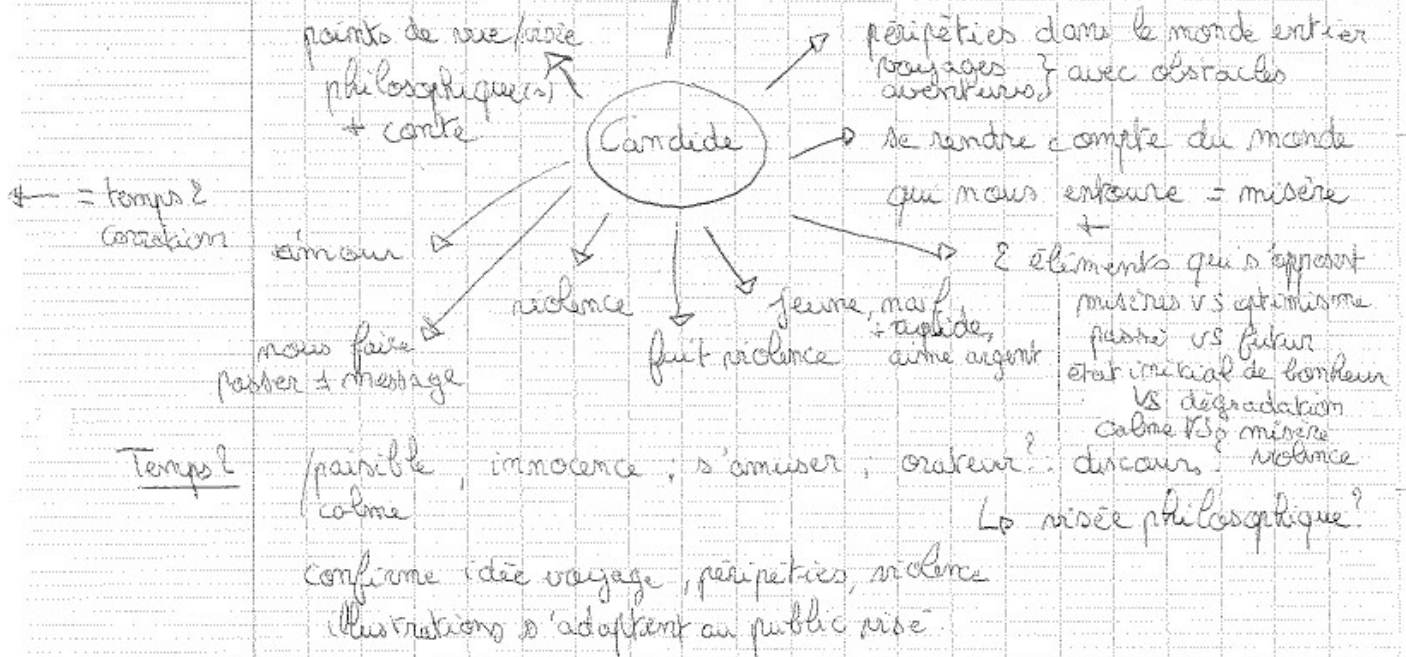 points de vue/visée
philosophique(s)
+ conte
Candide
péripéties dans le monde entier
voyages } avec obstacles
aventures
se rendre compte du monde
qui nous entoure = misère
+
2 éléments qui s'opposent
misères vs optimisme
passé vs futur
état initial de bonheur
VS dégradation
calme VS misère
violence
= temps 2
amour
violence
nous faire
passer ≠ message
fuit violence
jeune, naïf
aime argent
Temps 2
paisible, innocence ; s'amuser ; orateur? : discours?
calme
↳ visée philosophique?
confirme idée voyage, péripéties, violence
illustrations s'adaptent au public visé.